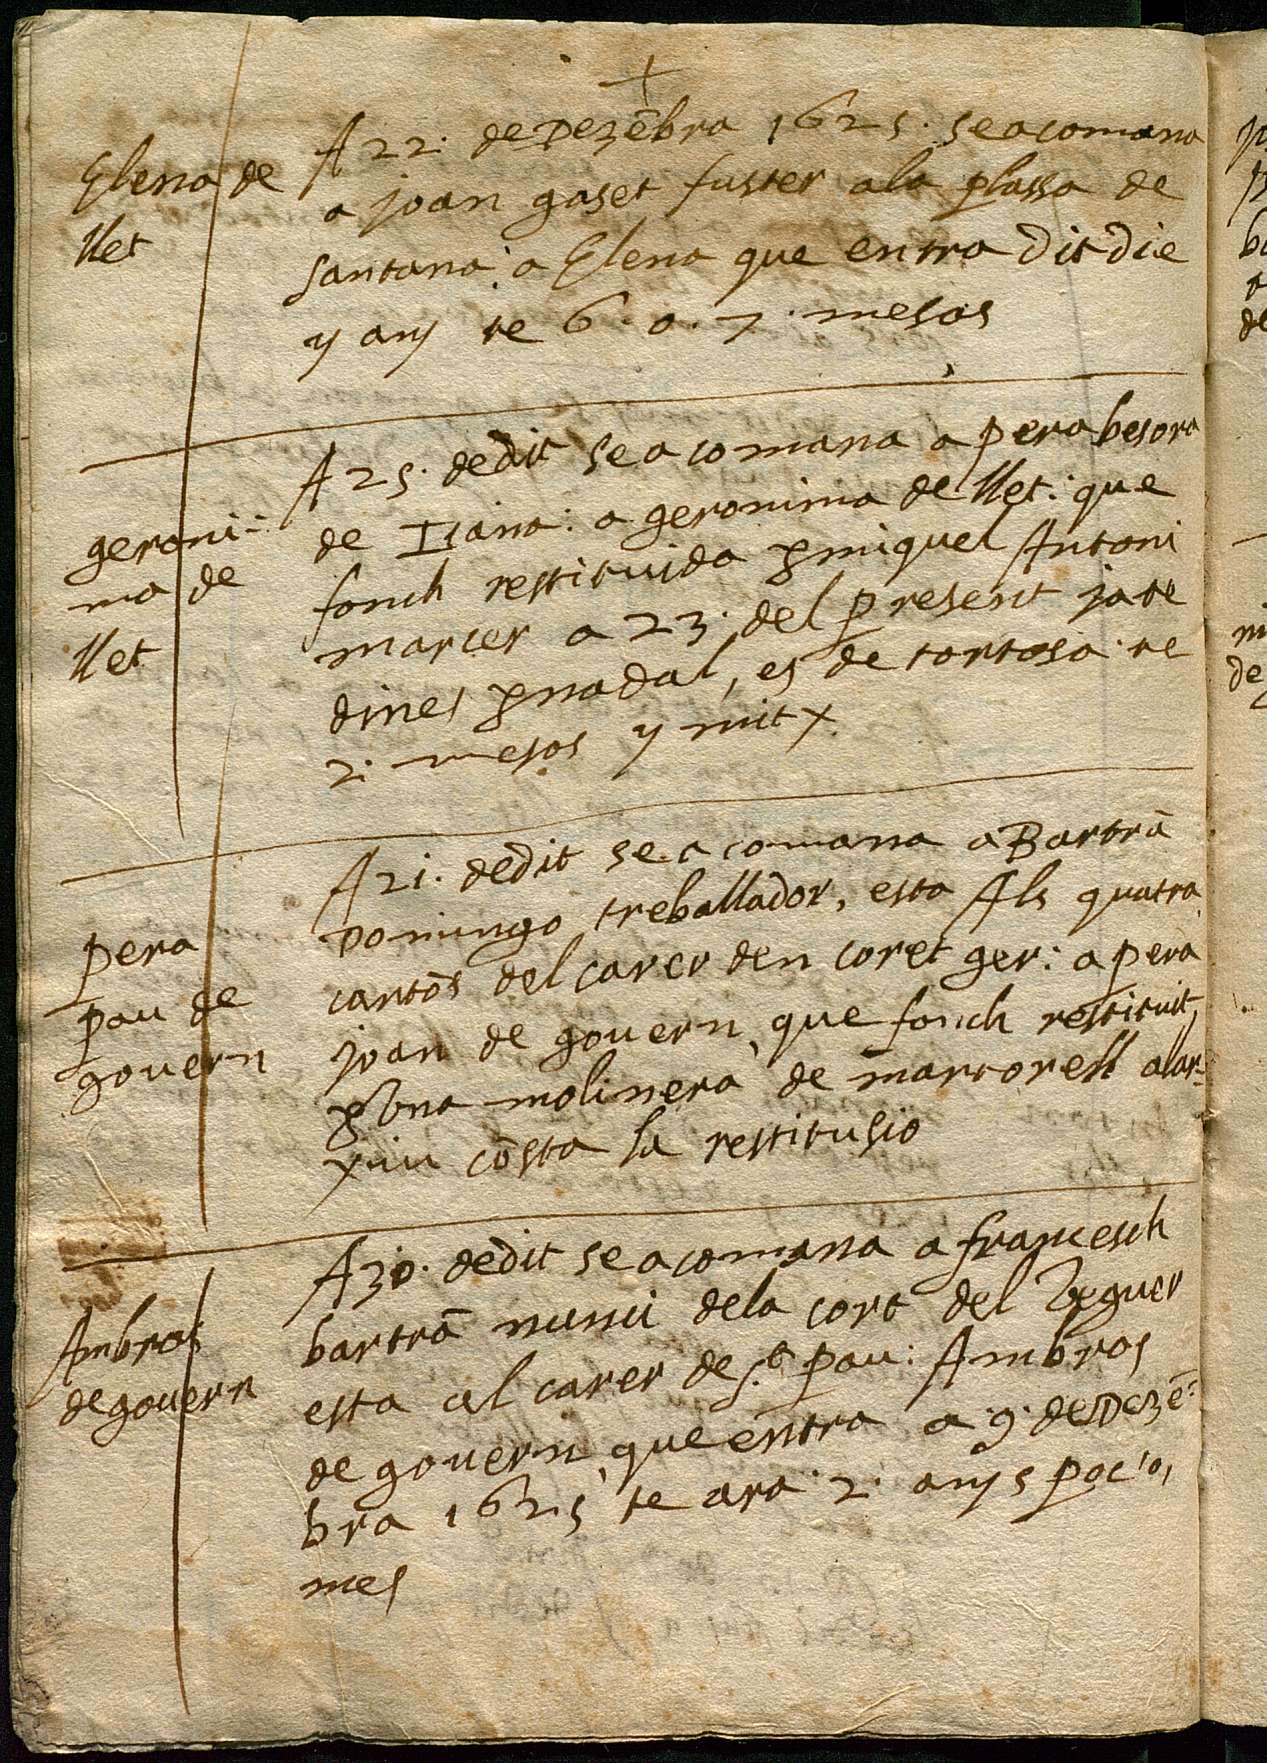 +
Elena de
llet
A 22. de Dezēbra 1625. se acomana
a joan gaset fuster ala plassa de
santana. a Elena que entra dit die
y any te 6. o. 7. mesos
geroni-
ma de
llet
A 25. dedit se a comana a pera besora
de Tiana: a geronima de llet: que
fonch restituida p miquel Antoni
marcer a 23. del present ja te
dines p nadal, es de tortosa te
2. mesos y mitx
pera
pau de
govern
A 21. dedit se a comana a Bartrā
Domingo treballador, esta Als quatra
cantōs del carer den coret ger: a pera
joan de govern, que fonch restituit,
p Una molinera de martorell alar-
xiu cōsta la restitusio
Ambros
de govern
A 30. dedit se acomana a francesch
bartrā nunci dela cort del Veguer
esta al carer de st pau: Ambros
de govern, que entra a 9. de Dezē-
bra 1625 te ara 2. anys poc o,
mes